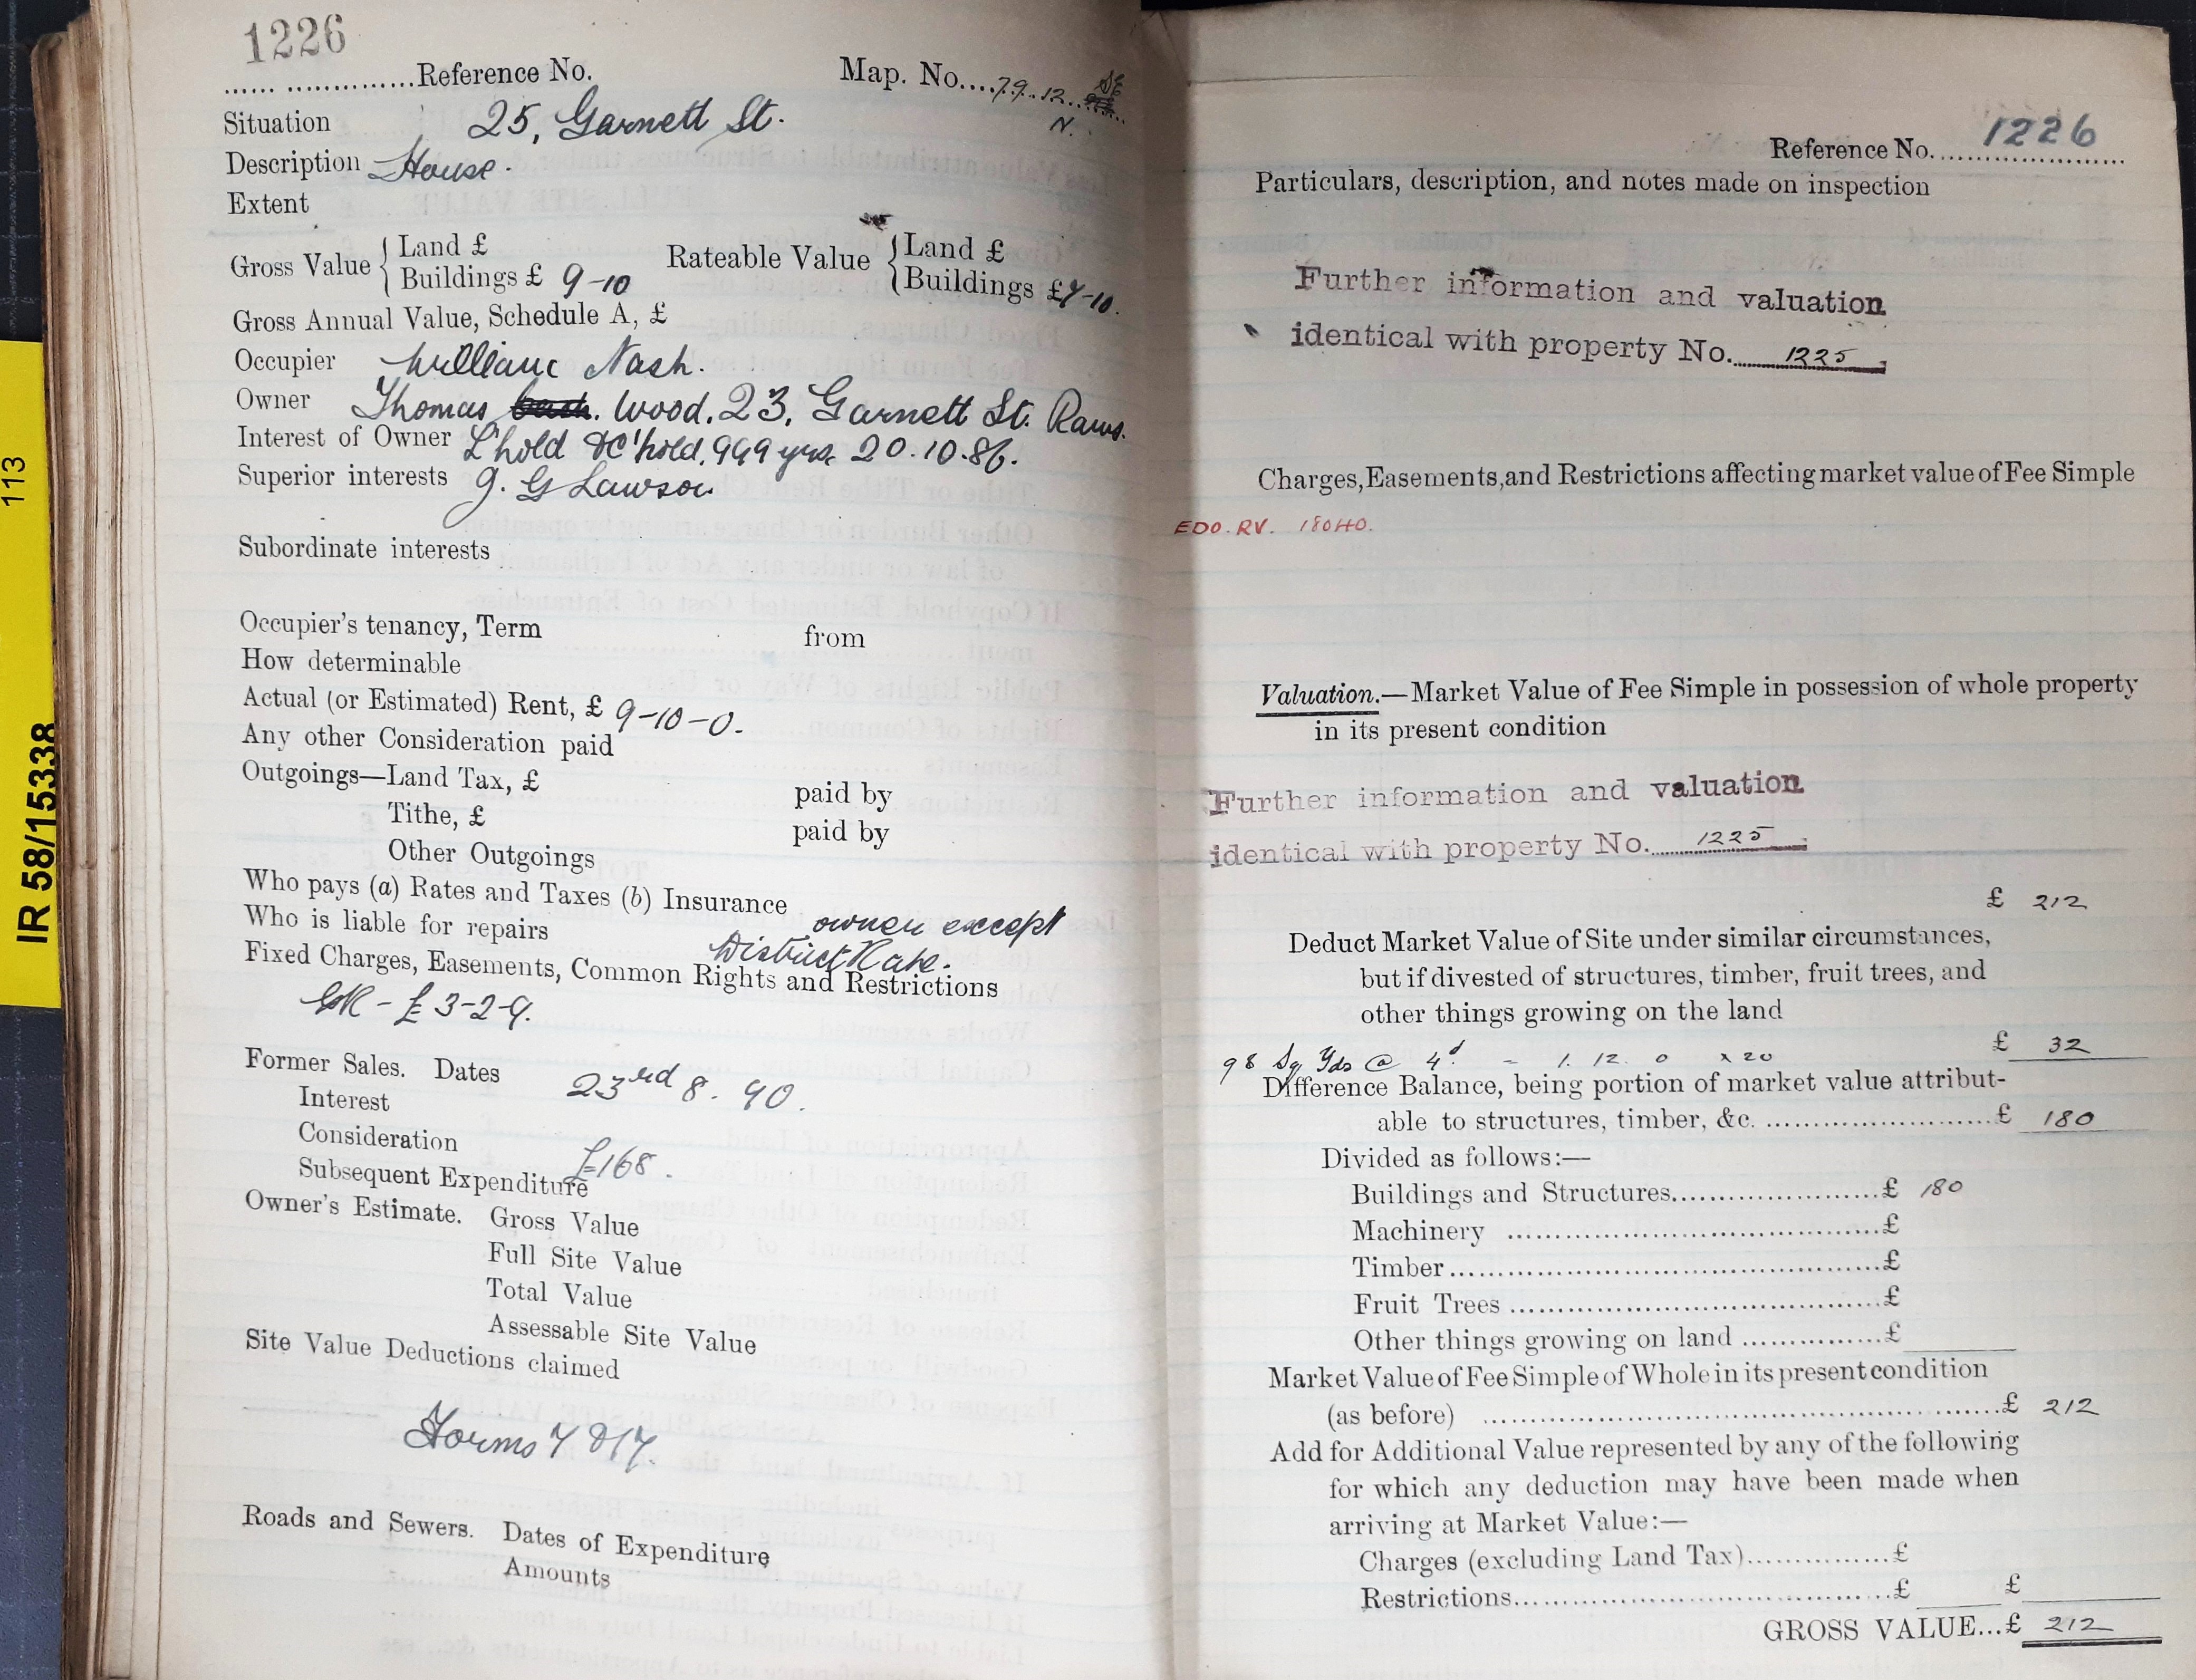 1226
Reference No. Map. No. 79. 12. SE
N.
Situation 25, Garnett St.
Description House.
Extent
Gross Value { Land £ Rateable Value { Land £
Buildings £ 9-10 Buildings £7-10.
Gross Annual Value, Schedule A, £
Occupier William Nash.
Owner Thomas Wood, 23, Garnett St. Raws.
Interest of Owner L'hold & C'hold, 999 yrs. 20.10.86.
Superior interests J. G Lawson
Subordinate interests
Occupier's tenancy, Term from
How determinable
Actual (or Estimated) Rent, £ 9-10-0.
Any other Consideration paid
Outgoings—Land Tax, £ paid by
Tithe, £ paid by
Other Outgoings
Who pays (a) Rates and Taxes (b) Insurance
Who is liable for repairs owner except
District Rate.
Fixed Charges, Easements, Common Rights and Restrictions
GR - £3-2-9.
Former Sales. Dates 23rd 8. 90.
Interest
Consideration £168.
Subsequent Expenditure
Owner's Estimate. Gross Value
Full Site Value
Total Value
Assessable Site Value
Site Value Deductions claimed
Forms 7 & 17.
Roads and Sewers. Dates of Expenditure
Amounts
113
IR 58/15338
Reference No. 1226
Particulars, description, and notes made on inspection
Further information and valuation
identical with property No. 1225
Charges, Easements, and Restrictions affecting market value of Fee Simple
EDO. RV. 180H0.
Valuation.—Market Value of Fee Simple in possession of whole property
in its present condition
Further information and valuation
identical with property No. 1225
£ 212
Deduct Market Value of Site under similar circumstances,
but if divested of structures, timber, fruit trees, and
other things growing on the land
98 Sq Yds @ 4d - 1. 12. 0 x 20 £ 32
Difference Balance, being portion of market value attribut-
able to structures, timber, &c. £ 180
Divided as follows:—
Buildings and Structures £ 180
Machinery £
Timber £
Fruit Trees £
Other things growing on land £
Market Value of Fee Simple of Whole in its present condition
(as before) £ 212
Add for Additional Value represented by any of the following
for which any deduction may have been made when
arriving at Market Value:—
Charges (excluding Land Tax) £
Restrictions £ £
GROSS VALUE...£ 212